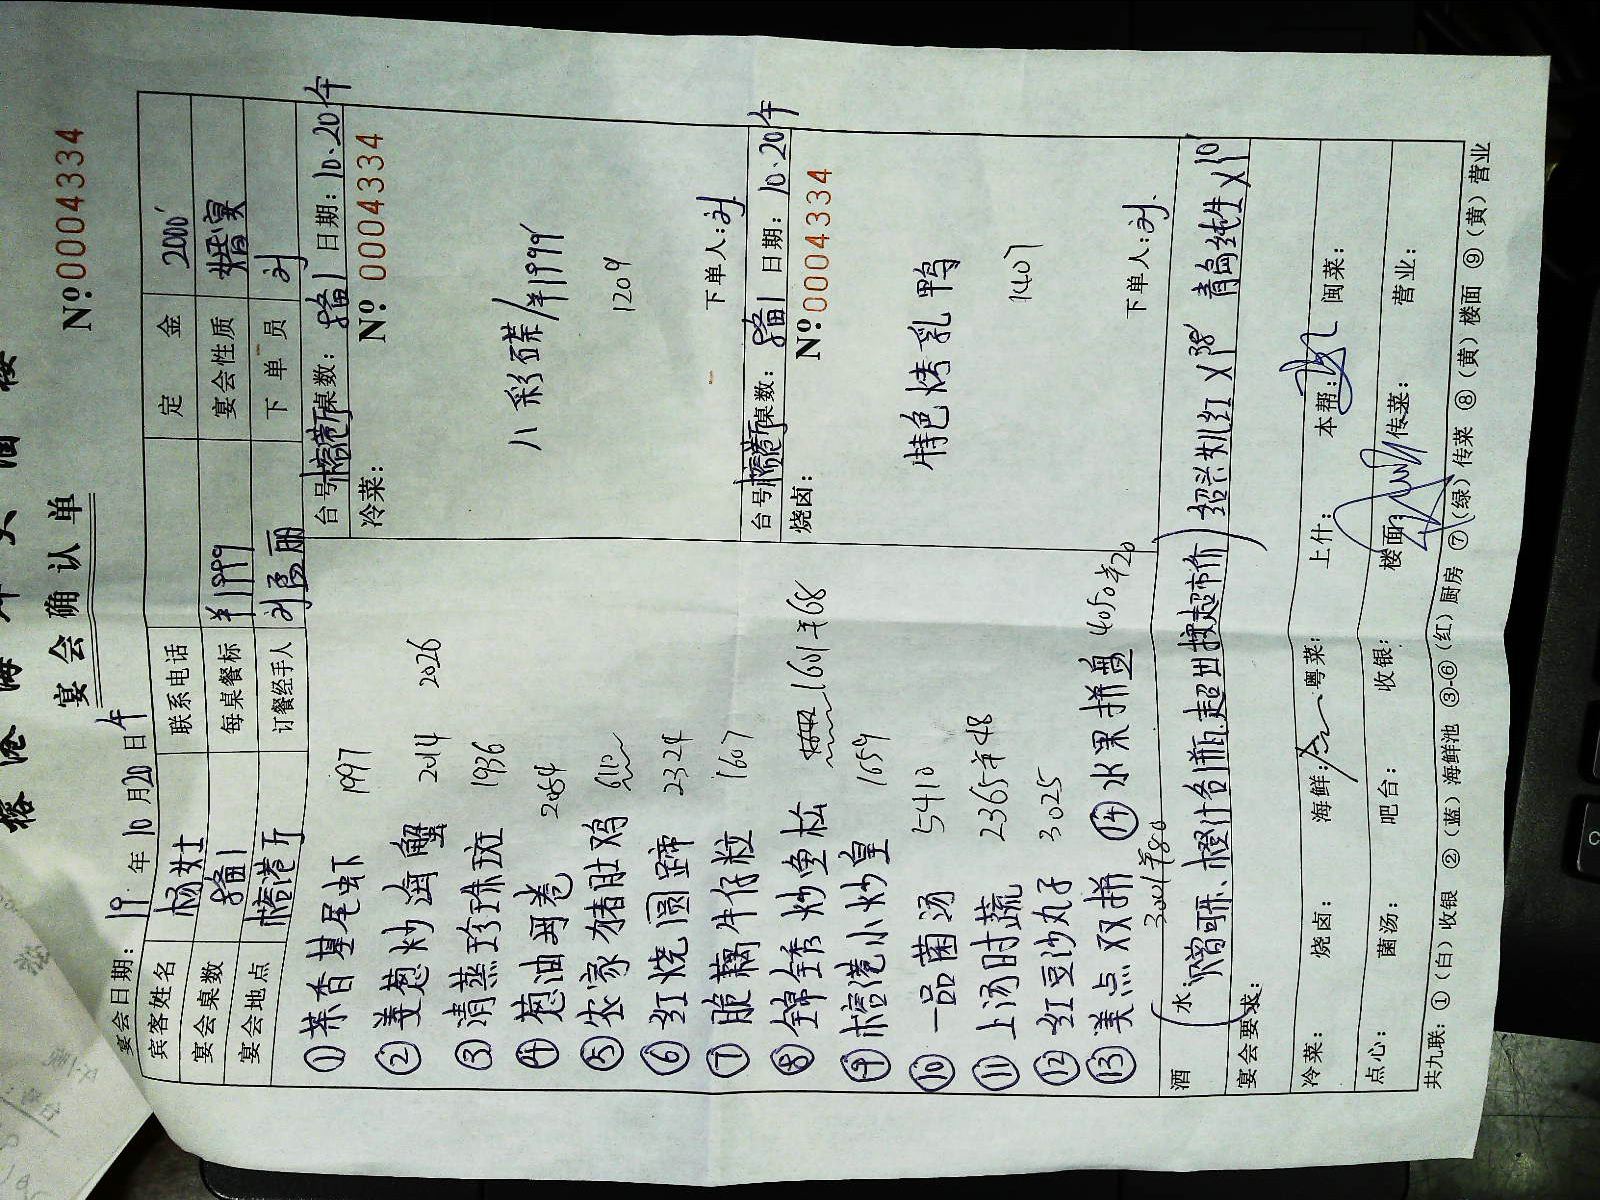 宴会确认单
Nº 0004334
宴会日期: 19 年 10 月 20 日 午
宾客姓名 杨女士 联系电话 定金 2000
宴会桌数 1 每桌餐标 ¥1999 宴会性质 婚宴
宴会地点 榕港厅 订餐经手人 下单员 刘
① 茶香基尾虾 1997
② 姜葱炒海蟹 2014 2026
③ 清蒸珍珠斑 1936
④ 葱油
⑤ 农家猪肚鸡
⑥ 红烧圆蹄 2324
⑦ 脆藕牛仔粒 1607
⑧ 锦绣炒鱼松 1601 ¥68
⑨ 榕港小炒皇 1659
⑩ 一品菌汤 5410
⑪ 上汤时蔬 2365 ¥48
⑫ 红豆沙丸子 3025
⑬ 美点双拼 3001 ¥80 ⑭ 水果拼盘 4050 ¥20
台号 桌数: 1 日期: 10.20 午
冷菜: Nº 0004334
八彩碟/¥1999
1209
下单人: 刘
台号 桌数: 1 日期: 10.20 午
烧卤: Nº 0004334
特色烤乳鸭
1407
下单人: 刘
酒水: (可乐、橙汁各1瓶.超出按超市价) 绍兴女儿红 青岛纯生
宴会要求:
冷菜: 烧卤: 海鲜: 粤菜: 上什: 本帮: 闽菜:
点心: 菌汤: 吧台: 收银: 楼面: 传菜: 营业:
共九联: ①(白)收银 ②(蓝)海鲜池 ③-⑥(红)厨房 ⑦(绿)传菜 ⑧(黄)楼面 ⑨(黄)营业